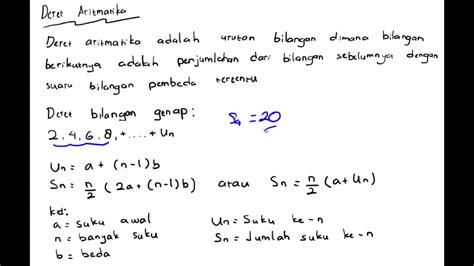 Deret Aritmatika
Deret aritmatika adalah urutan bilangan dimana bilangan
berikutnya adalah penjumlahan dari bilangan sebelumnya dengan
suatu bilangan pembeda tertentu
Deret bilangan genap :
2, 4, 6, 8, + .... + Un
S4 = 20
Un = a + (n-1) b
Sn = n/2 (2a + (n-1) b) atau Sn = n/2 (a + Un)
ket:
a = suku awal
n = banyak suku
b = beda
Un = Suku ke - n
Sn = Jumlah suku ke - n